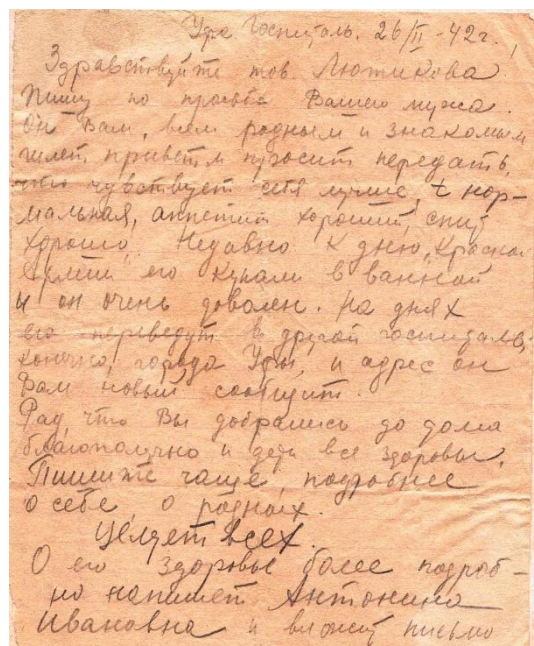 Уфа Госпиталь. 26/II – 42 г.
Здравствуйте тов. Лютикова
Пишу по просьбе Вашего мужа.
Он Вам, всем родным и знакомым
шлет привет и просит передать,
что чувствует себя лучше, t нор-
мальная, аппетит хороший, спит
хорошо. Недавно к дню „Красной
Армии его купали в ванной
и он очень доволен. На днях
его переведут в другой госпиталь,
конечно, города Уфы, и адрес он
Вам новый сообщит.
Рад, что Вы добрались до дома
благополучно и дети все здоровы.
Пишите чаще, подробнее
о себе, о родных.
Целует всех.
О его здоровье более подроб-
но напишет Антонина
Ивановна и вложит письмо